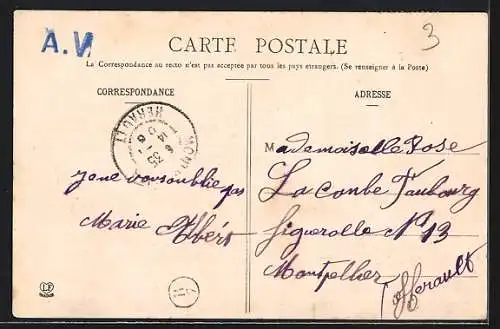 A.V.
3
CARTE POSTALE
La Correspondance au recto n'est pas acceptée par tous les pays étrangers. (Se renseigner à la Poste)
CORRESPONDANCE
ADRESSE
HERAULT
Jane vousoublie pas
Marie Albért
Mademoiselle Rose
Laconbe Faubourg
figuerolle N° 13
Montpellier
Herault